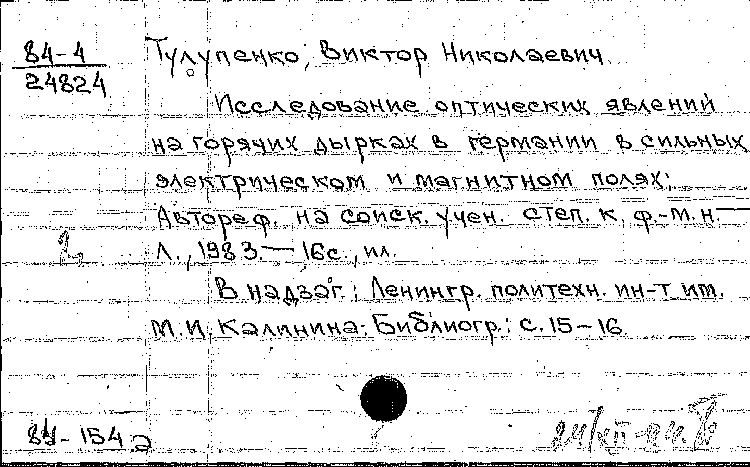 84-4
24824
Тулупенко, Виктор Николаевич.
Исследование оптических явлений
на горячих дырках в германии в сильных
электрическом и магнитном полях:
Автореф. на соиск. учен. степ. к. ф.-м. н. —
Л., 1983. — 16с., ил.
В надзаг.: Ленингр. политехн. ин-т им.
М.И. Калинина. Библиогр.: с. 15-16.
84-154а